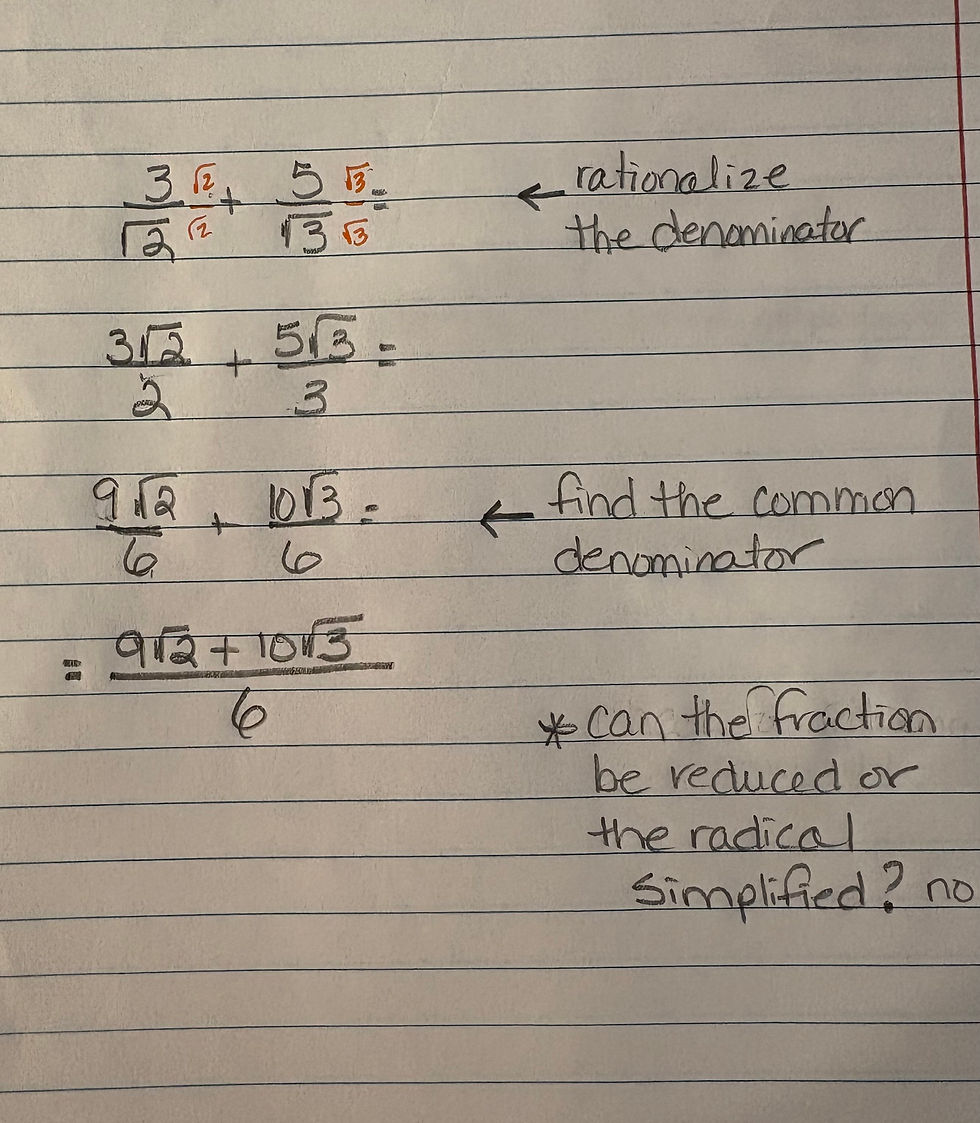 3/√2 √2/√2 + 5/√3 √3/√3 = ← rationalize
the denominator
3√2/2 + 5√3/3 =
9√2/6 + 10√3/6 = ← find the common
denominator
= 9√2 + 10√3/6
* can the fraction
be reduced or
the radical
simplified? no